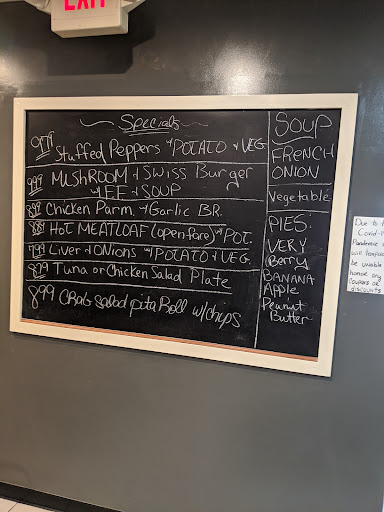 EXIT
Specials
999 Stuffed Peppers w/POTATO + VEG
999 MUSHROOM + Swiss Burger
w/FF + SOUP
899 Chicken Parm. w/Garlic BR.
Hot MEATLOAF (open face) w/POT.
799 Liver + ONions w/POTATO + VEG.
899 Tuna or Chicken Salad Plate
899 CRab Salad pita Roll w/chips
SOUP
FRENCH
ONION
Vegetable
PIES:
VERY
Berry
BANANA
Apple
Peanut
Butter
Due to the
Covid-19
Pandemic
will
be unable
honor any
Coupons or
discounts